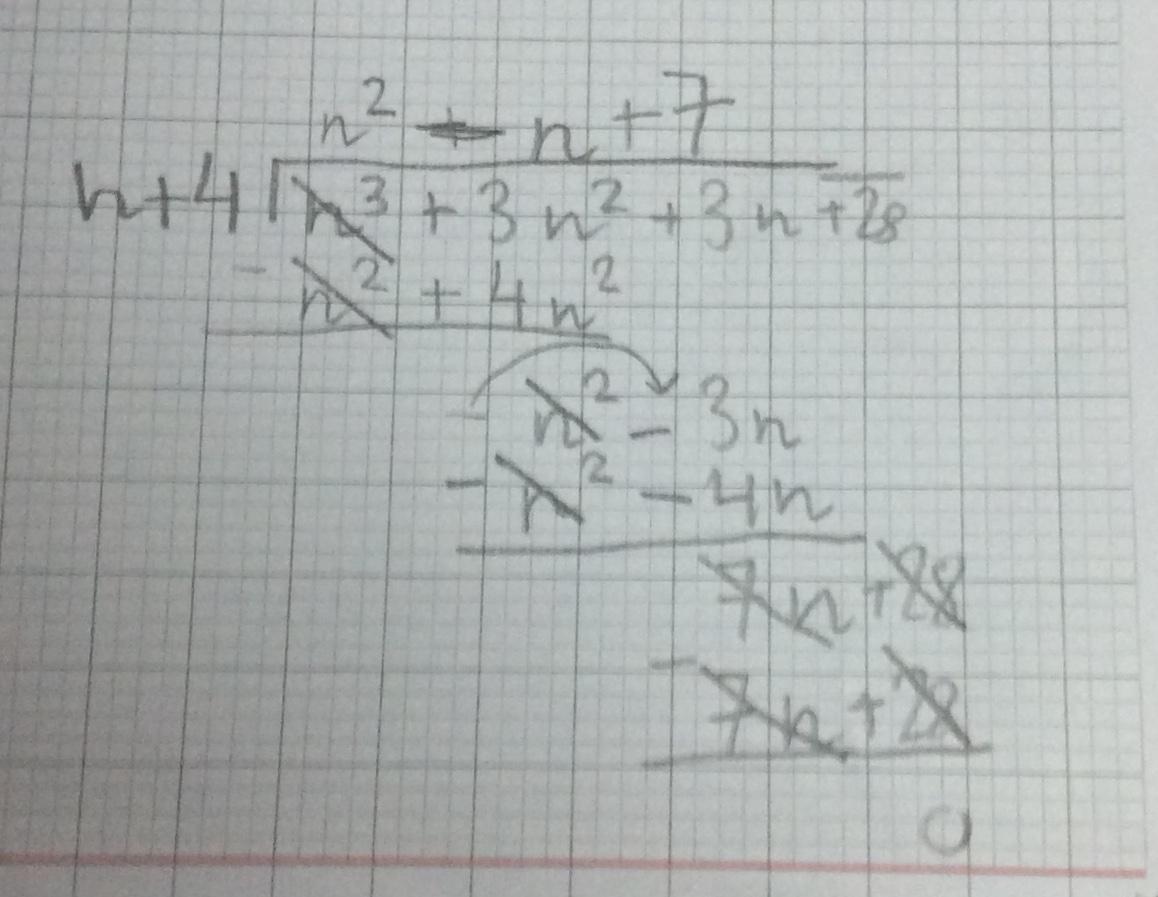 n² - n + 7
n+4 | n³ + 3n² + 3n + 28
- n² + 4n²
- n² - 3n
- n² - 4n
7n + 28
- 7n + 28
0